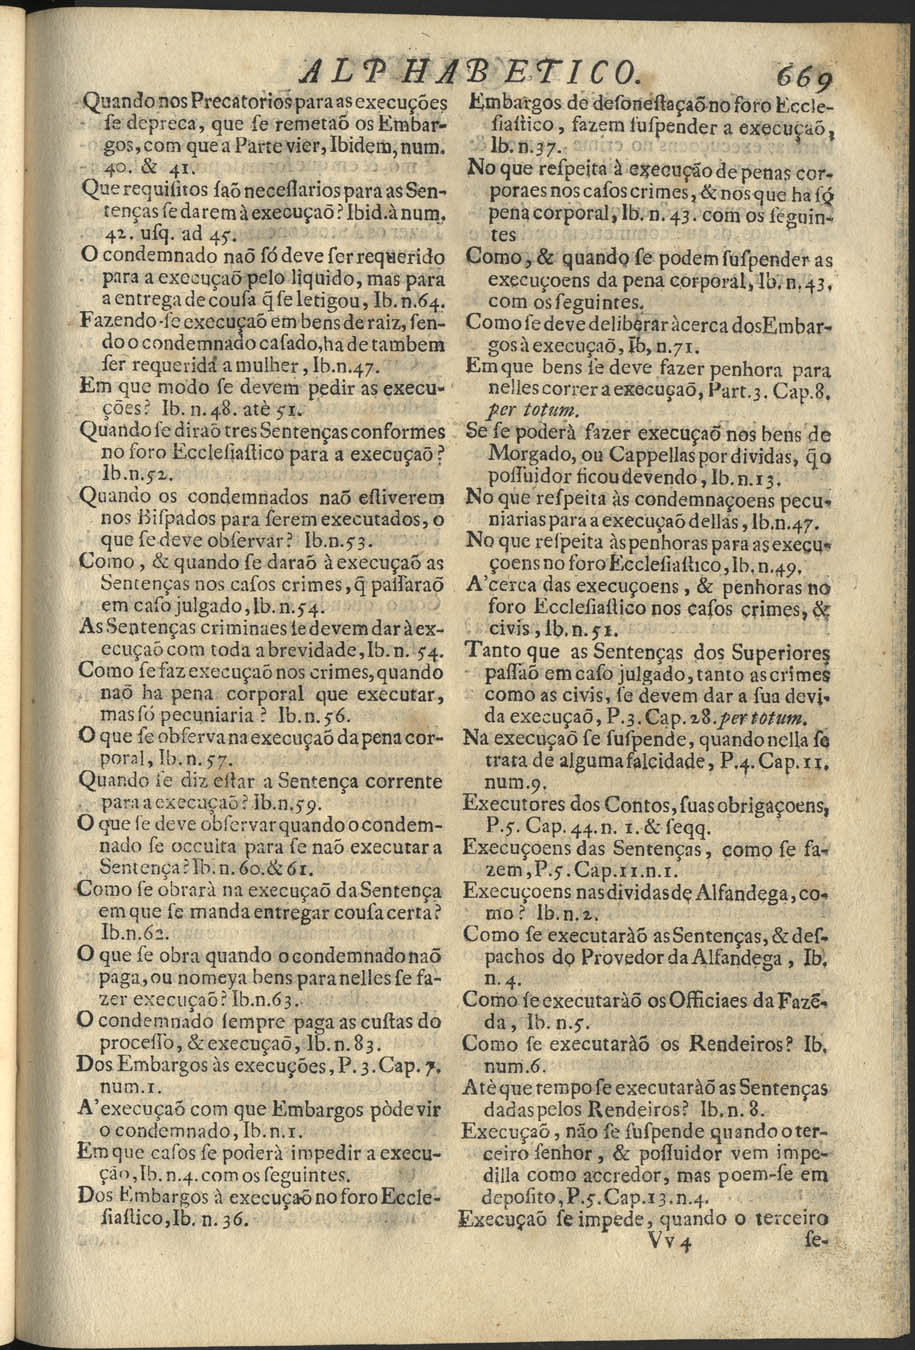 ALPHABETICO. 669
Quando nos Precatorios para as execuções
ſe depreca, que ſe remetaõ os Embar-
gos, com que a Parte vier, Ibidem, num.
40. & 41.
Que requiſitos ſaõ neceſſarios para as Sen-
tenças ſe darem à execuçaõ? Ibid. à num.
42. uſq. ad 45.
O condemnado naõ ſó deve ſer requerido
para a execuçaõ pelo liquido, mas para
a entrega de couſa q̃ ſe letigou, Ib. n. 64.
Fazendo-ſe execuçaõ em bens de raiz, ſen-
do o condemnado caſado, ha de tambem
ſer requerida a mulher, Ib. n. 47.
Em que modo ſe devem pedir as execu-
ções? Ib. n. 48. atè 51.
Quando ſe diraõ tres Sentenças conformes
no foro Eccleſiaſtico para a execuçaõ?
Ib. n. 52.
Quando os condemnados naõ eſtiverem
nos Biſpados para ſerem executados, o
que ſe deve obſervar? Ib. n. 53.
Como, & quando ſe daraõ à execuçaõ as
Sentenças nos caſos crimes, q̃ paſſaraõ
em caſo julgado, Ib. n. 54.
As Sentenças criminaes ſe devem dar à ex-
ecuçaõ com toda a brevidade, Ib. n. 54.
Como ſe faz execuçaõ nos crimes, quando
naõ ha pena corporal que executar,
mas ſó pecuniaria? Ib. n. 56.
O que ſe obſerva na execuçaõ da pena cor-
poral, Ib. n. 57.
Quando ſe diz eſtar a Sentença corrente
para a execuçaõ? Ib. n. 59.
O que ſe deve obſervar quando o condem-
nado ſe occulta para ſe naõ executar a
Sentença? Ib. n. 60. & 61.
Como ſe obrarà na execuçaõ da Sentença
em que ſe manda entregar couſa certa?
Ib. n. 62.
O que ſe obra quando o condemnado naõ
paga, ou nomeya bens para nelles ſe fa-
zer execuçaõ? Ib. n. 63.
O condemnado ſempre paga as cuſtas do
proceſſo, & execuçaõ, Ib. n. 83.
Dos Embargos às execuções, P. 3. Cap. 7.
num. 1.
A' execuçaõ com que Embargos pòde vir
o condemnado, Ib. n. 1.
Em que caſos ſe poderà impedir a execu-
ção, Ib. n. 4. com os ſeguintes.
Dos Embargos à execuçaõ no foro Eccle-
ſiaſtico, Ib. n. 36.
Embargos de deſoneſtaçaõ no foro Eccle-
ſiaſtico, fazem ſuſpender a execuçaõ,
Ib. n. 37.
No que reſpeita à execução de penas cor-
poraes nos caſos crimes, & nos que ha ſó
pena corporal, Ib. n. 43. com os ſeguin-
tes
Como, & quando ſe podem ſuſpender as
execuçoens da pena corporal, Ib. n. 43.
com os ſeguintes.
Como ſe deve deliberar àcerca dos Embar-
gos à execuçaõ, Ib. n. 71.
Em que bens ſe deve fazer penhora para
nelles correr a execuçaõ, Part. 3. Cap. 8.
per totum.
Se ſe poderà fazer execuçaõ nos bens de
Morgado, ou Cappellas por dividas, q̃ o
poſſuidor ficou devendo, Ib. n. 13.
No que reſpeita às condemnaçoens pecu-
niarias para a execuçaõ dellas, Ib. n. 47.
No que reſpeita às penhoras para as execu-
çoens no foro Eccleſiaſtico, Ib. n. 49.
A' cerca das execuçoens, & penhoras no
foro Eccleſiaſtico nos caſos crimes, &
civis, Ib. n. 51.
Tanto que as Sentenças dos Superiores
paſſaõ em caſo julgado, tanto as crimes
como as civis, ſe devem dar a ſua devi-
da execuçaõ, P. 3. Cap. 28. per totum.
Na execuçaõ ſe ſuſpende, quando nella ſe
trata de alguma falcidade, P. 4. Cap. 11.
num. 9.
Executores dos Contos, ſuas obrigaçoens,
P. 5. Cap. 44. n. 1. & ſeqq.
Execuçoens das Sentenças, como ſe fa-
zem, P. 5. Cap. 11. n. 1.
Execuçoens nas dividas de Alfandega, co-
mo? Ib. n. 2.
Como ſe executaràõ as Sentenças, & deſ-
pachos do Provedor da Alfandega, Ib.
n. 4.
Como ſe executaràõ os Officiaes da Fazẽ-
da, Ib. n. 5.
Como ſe executaràõ os Rendeiros? Ib.
num. 6.
Atè que tempo ſe executaràõ as Sentenças
dadas pelos Rendeiros? Ib. n. 8.
Execuçaõ, não ſe ſuſpende quando o ter-
ceiro ſenhor, & poſſuidor vem impe-
dilla como accredor, mas poem-ſe em
depoſito, P. 5. Cap. 13. n. 4.
Execuçaõ ſe impede, quando o terceiro
Vv 4 ſe-